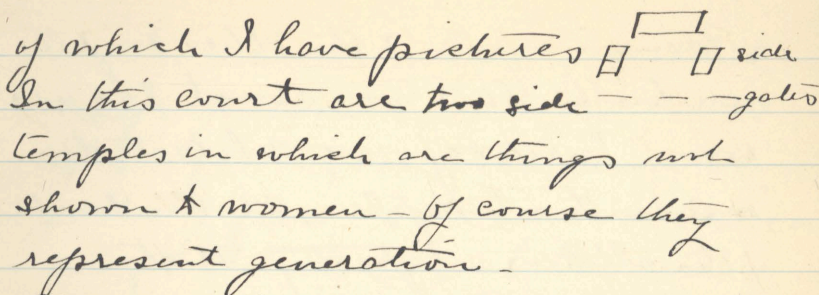 of which I have pictures side
In this court are two side — — — gates
temples in which are things not
shown to women – Of course they
represent generation –